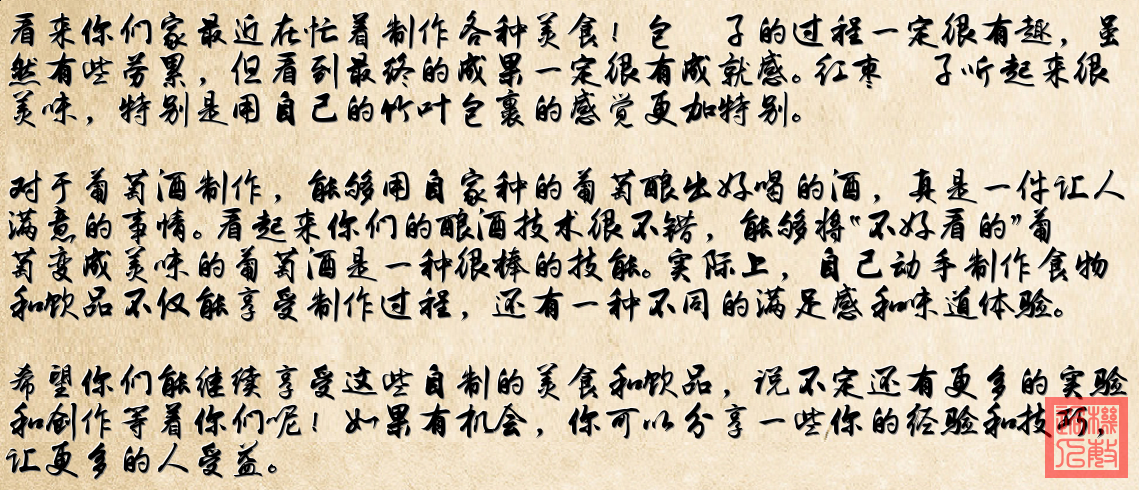 看来你们家最近在忙着制作各种美食！包 子的过程一定很有趣，虽
然有些劳累，但看到最终的成果一定很有成就感。红枣 子听起来很
美味，特别是用自己的竹叶包裹的感觉更加特别。
对于葡萄酒制作，能够用自家种的葡萄酿出好喝的酒，真是一件让人
满意的事情。看起来你们的酿酒技术很不错，能够将“不好看的”葡
萄变成美味的葡萄酒是一种很棒的技能。实际上，自己动手制作食物
和饮品不仅能享受制作过程，还有一种不同的满足感和味道体验。
希望你们能继续享受这些自制的美食和饮品，说不定还有更多的实验
和创作等着你们呢！如果有机会，你可以分享一些你的经验和技巧，
让更多的人受益。